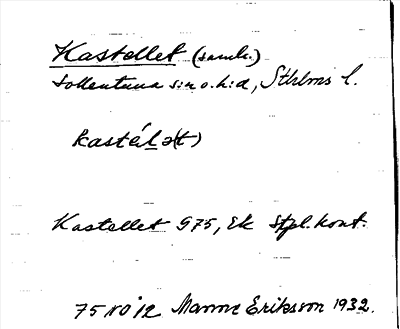 Kastellet (samh.)
Sollentuna s:n o. h:d, Sthlms l.
kastél ə(t)
Kastellet 975, Ek Stpl. kont.
75 NO 12 Manne Eriksson 1932.